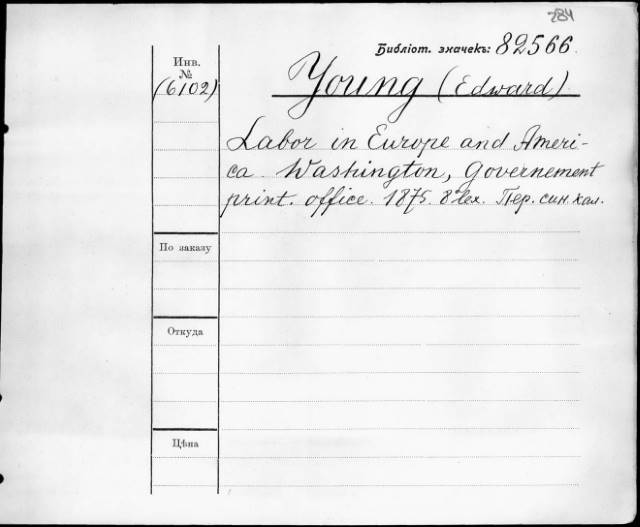 284
Библіот. значекъ: 82566
Инв.
№
(6102)
Young (Edward)
Labor in Europe and Ameri-
ca. Washington, Governement
print. office. 1875. 8 lex. Пер. син. кал.
По заказу
Откуда
Цѣна